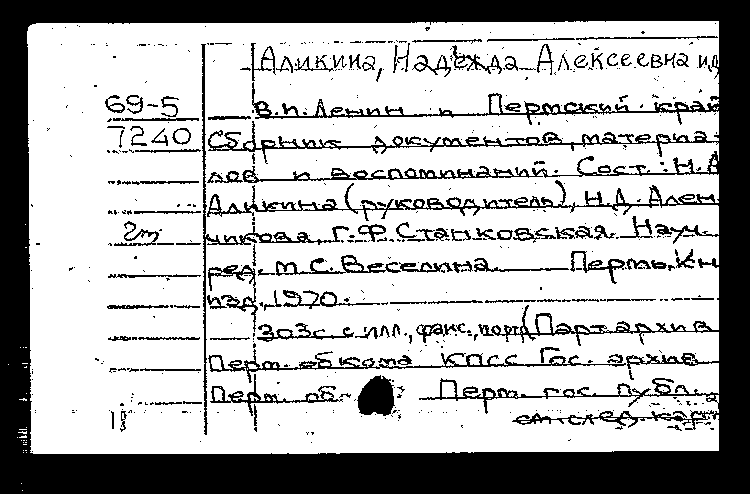 Аликина, Надежда Алексеевна и д
69-5
В.И. Ленин и Пермский край
7240
Сборник документов, материа-
лов и воспоминаний. Сост.: Н.А
Аликина (руководитель), Н.Д. Ален-
2т
чикова, Г.Ф. Станковская. Науч.
ред. М.С. Веселина. Пермь, Кн
изд., 1970.
303с с илл., факс., портр (Партархив
Перм. обкома КПСС Гос. архив
Перм. об. Перм. гос. публ.
18
см. след. карт